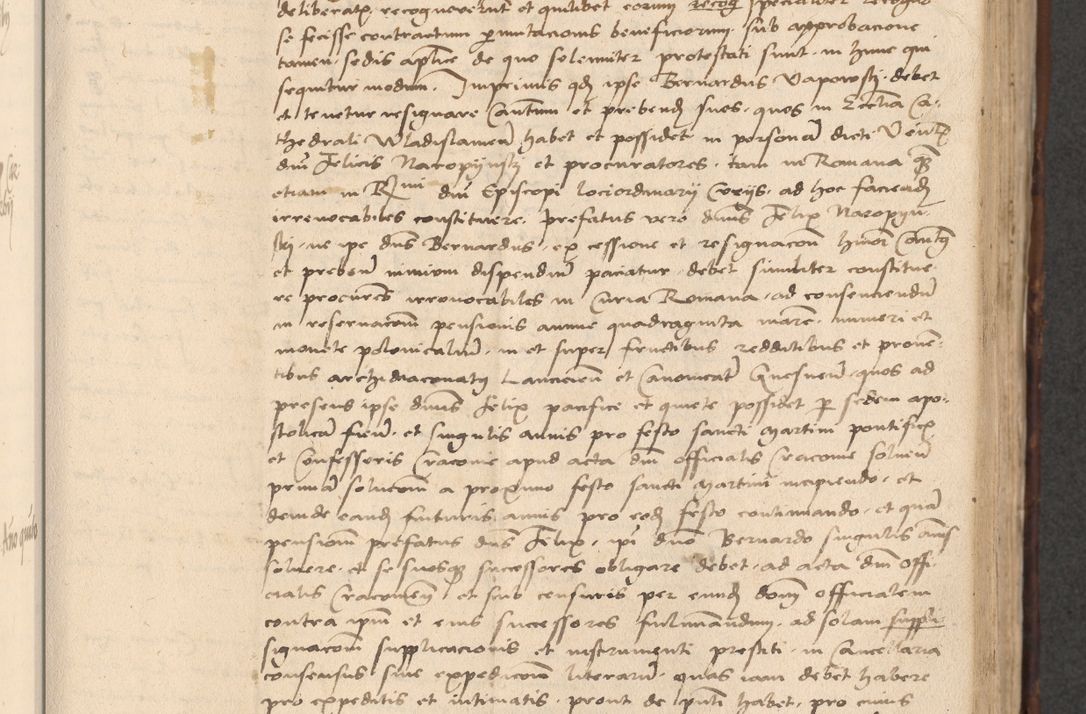 deliberatę recognoverunt et quilibet eorum recog specialiter recogno
se fecisse contractum permutacionis beneficiorum, sub approbacione
tamen sedis aplice de quo solemniter protestati sunt in hunc qui
sequitur modum. Imprimis qd ipse Bernardus Vaposky debet
et tenetur resignare Cantum et prebend suos, quos in Ecclia Ca-
thedrali Wladislavien habet et possidet in personam dicti Venlis
dni Felicis Naropynsky et procuratores, tam in Romana qz
etiam in Rmi dni Episcopi lociordinarij Curijs, ad hoc faciend
irrevocabiles constituere. Prefatus vero dnus Felix Naropyn-
sky, ne ipe dns Bernardus, ex cessione et resignacon hmoi Cantus
et preben nimium dispendium paciatur, debet similiter constitue-
re procures irrevocabiles in Curia Romana, ad consenciendum
in reservacom pensionis annue quadraginta marc, numeri et
monete polonicalium, in et super fructibus redditibus et proven-
tibus archidiaconatus Lancicien et Canonicat Gnesnen, quos ad
presens ipse dnus Felix pacifice et quiete possidet p sedem apo-
stolicam fiend, et singulis annis pro festo sancti Martini pontificis
et Confessoris Cracovie apud acta dni officialis Cracovie solvend
primam solucom a proximo festo sancti Martini incipiendo, et
deinde eand futuris annis pro eod festo continuando, et quam
pensionem prefatus dns Felix, ipi dno Bernardo singulis annis
solvere, et se suosqz successores obligare debet, ad acta dni offi-
cialis Cracovien, et sub censuris per eund domi officialem
contra ipm et eius successores fulminandum, ad solam suppli
signacom supplicacionis et instrumenti prestiti, in Cancellaria
consensus sine expedicom literarum, quas iam debet habere
pro expeditis et intimatis, prout de pnti habet, pro cuius